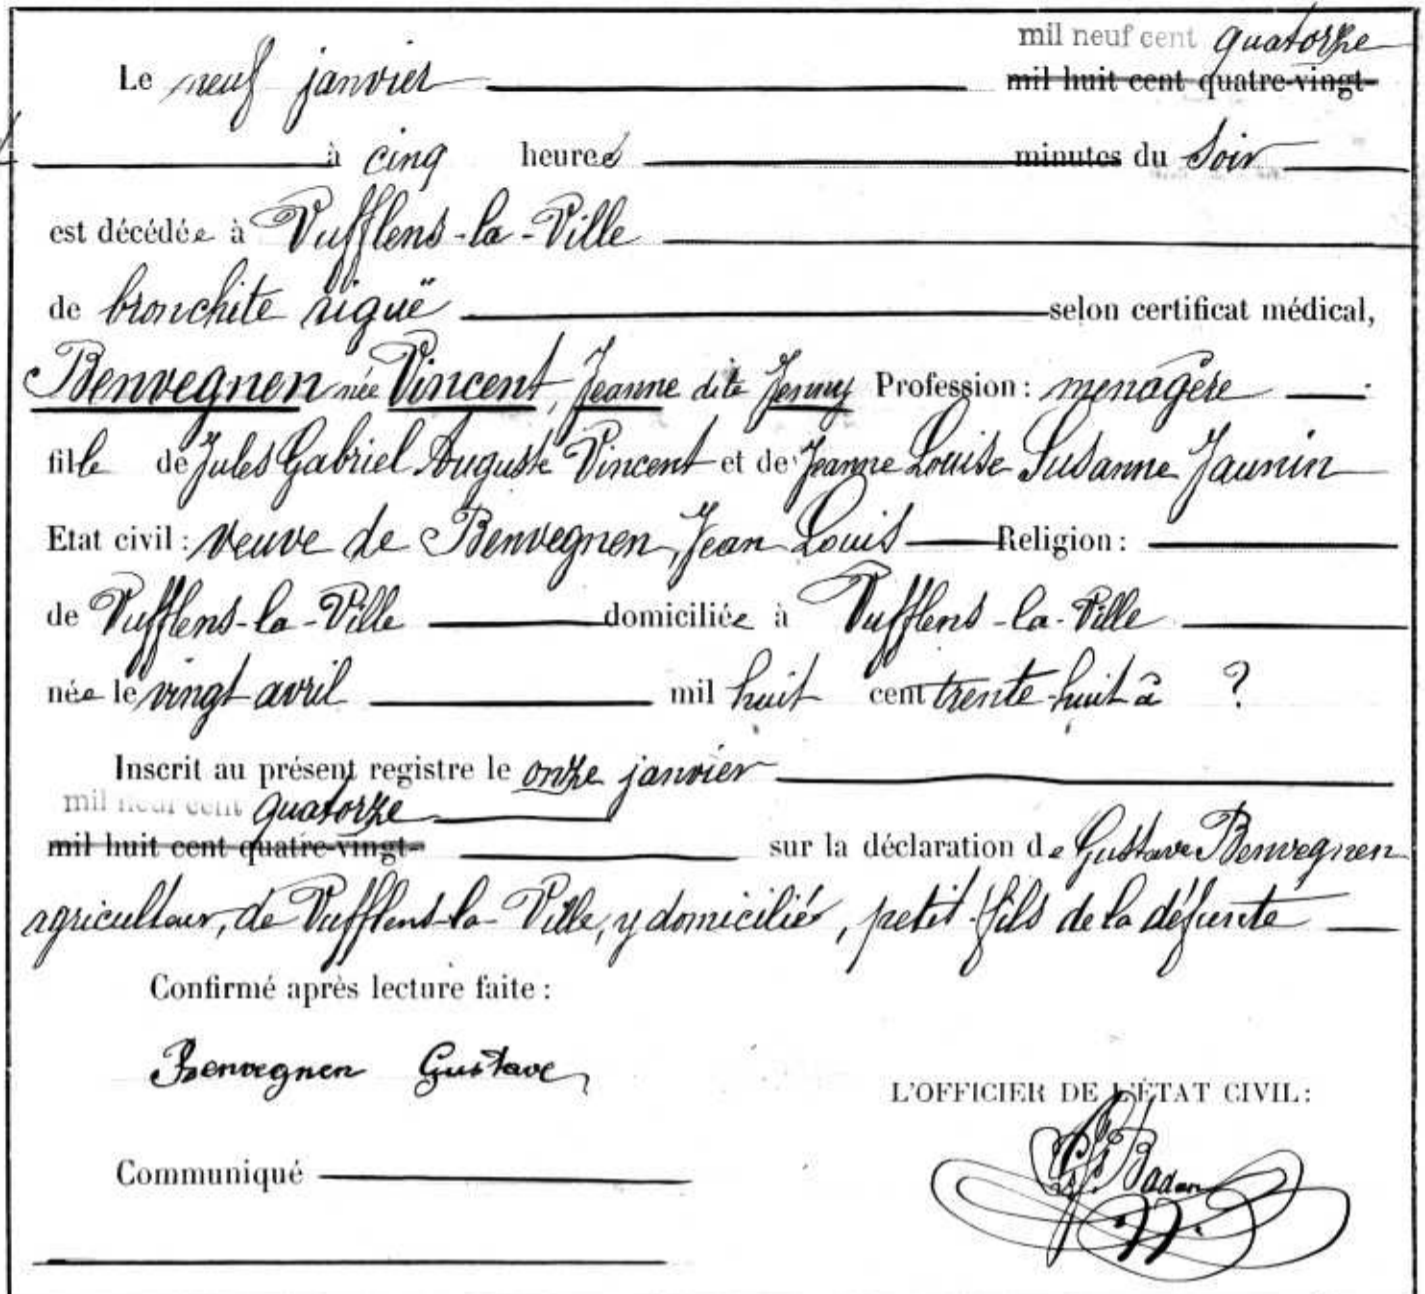 mil neuf cent quatorze
Le neuf janvier mil huit cent quatre-vingt-
à cinq heures minutes du soir
est décédée à Vufflens-la-Ville
de bronchite aiguë selon certificat médical,
Benvegnen née Vincent, Jeanne dite Jenny Profession: menagère
fille de Jules Gabriel Auguste Vincent et de Jeanne Louise Susanne Jaunin
Etat civil: veuve de Benvegnen, Jean Louis Religion:
de Vufflens-la-Ville domiciliée à Vufflens-la-Ville
née le vingt avril mil huit cent trente-huit à ?
Inscrit au présent registre le onze janvier
mil neuf cent quatorze
mil huit cent quatre-vingt- sur la déclaration de Gustave Benvegnen
agriculteur, de Vufflens-la-Ville, y domicilié, petit-fils de la défunte
Confirmé après lecture faite:
Benvegnen Gustave
L'OFFICIER DE L'ÉTAT CIVIL:
Badan
Communiqué